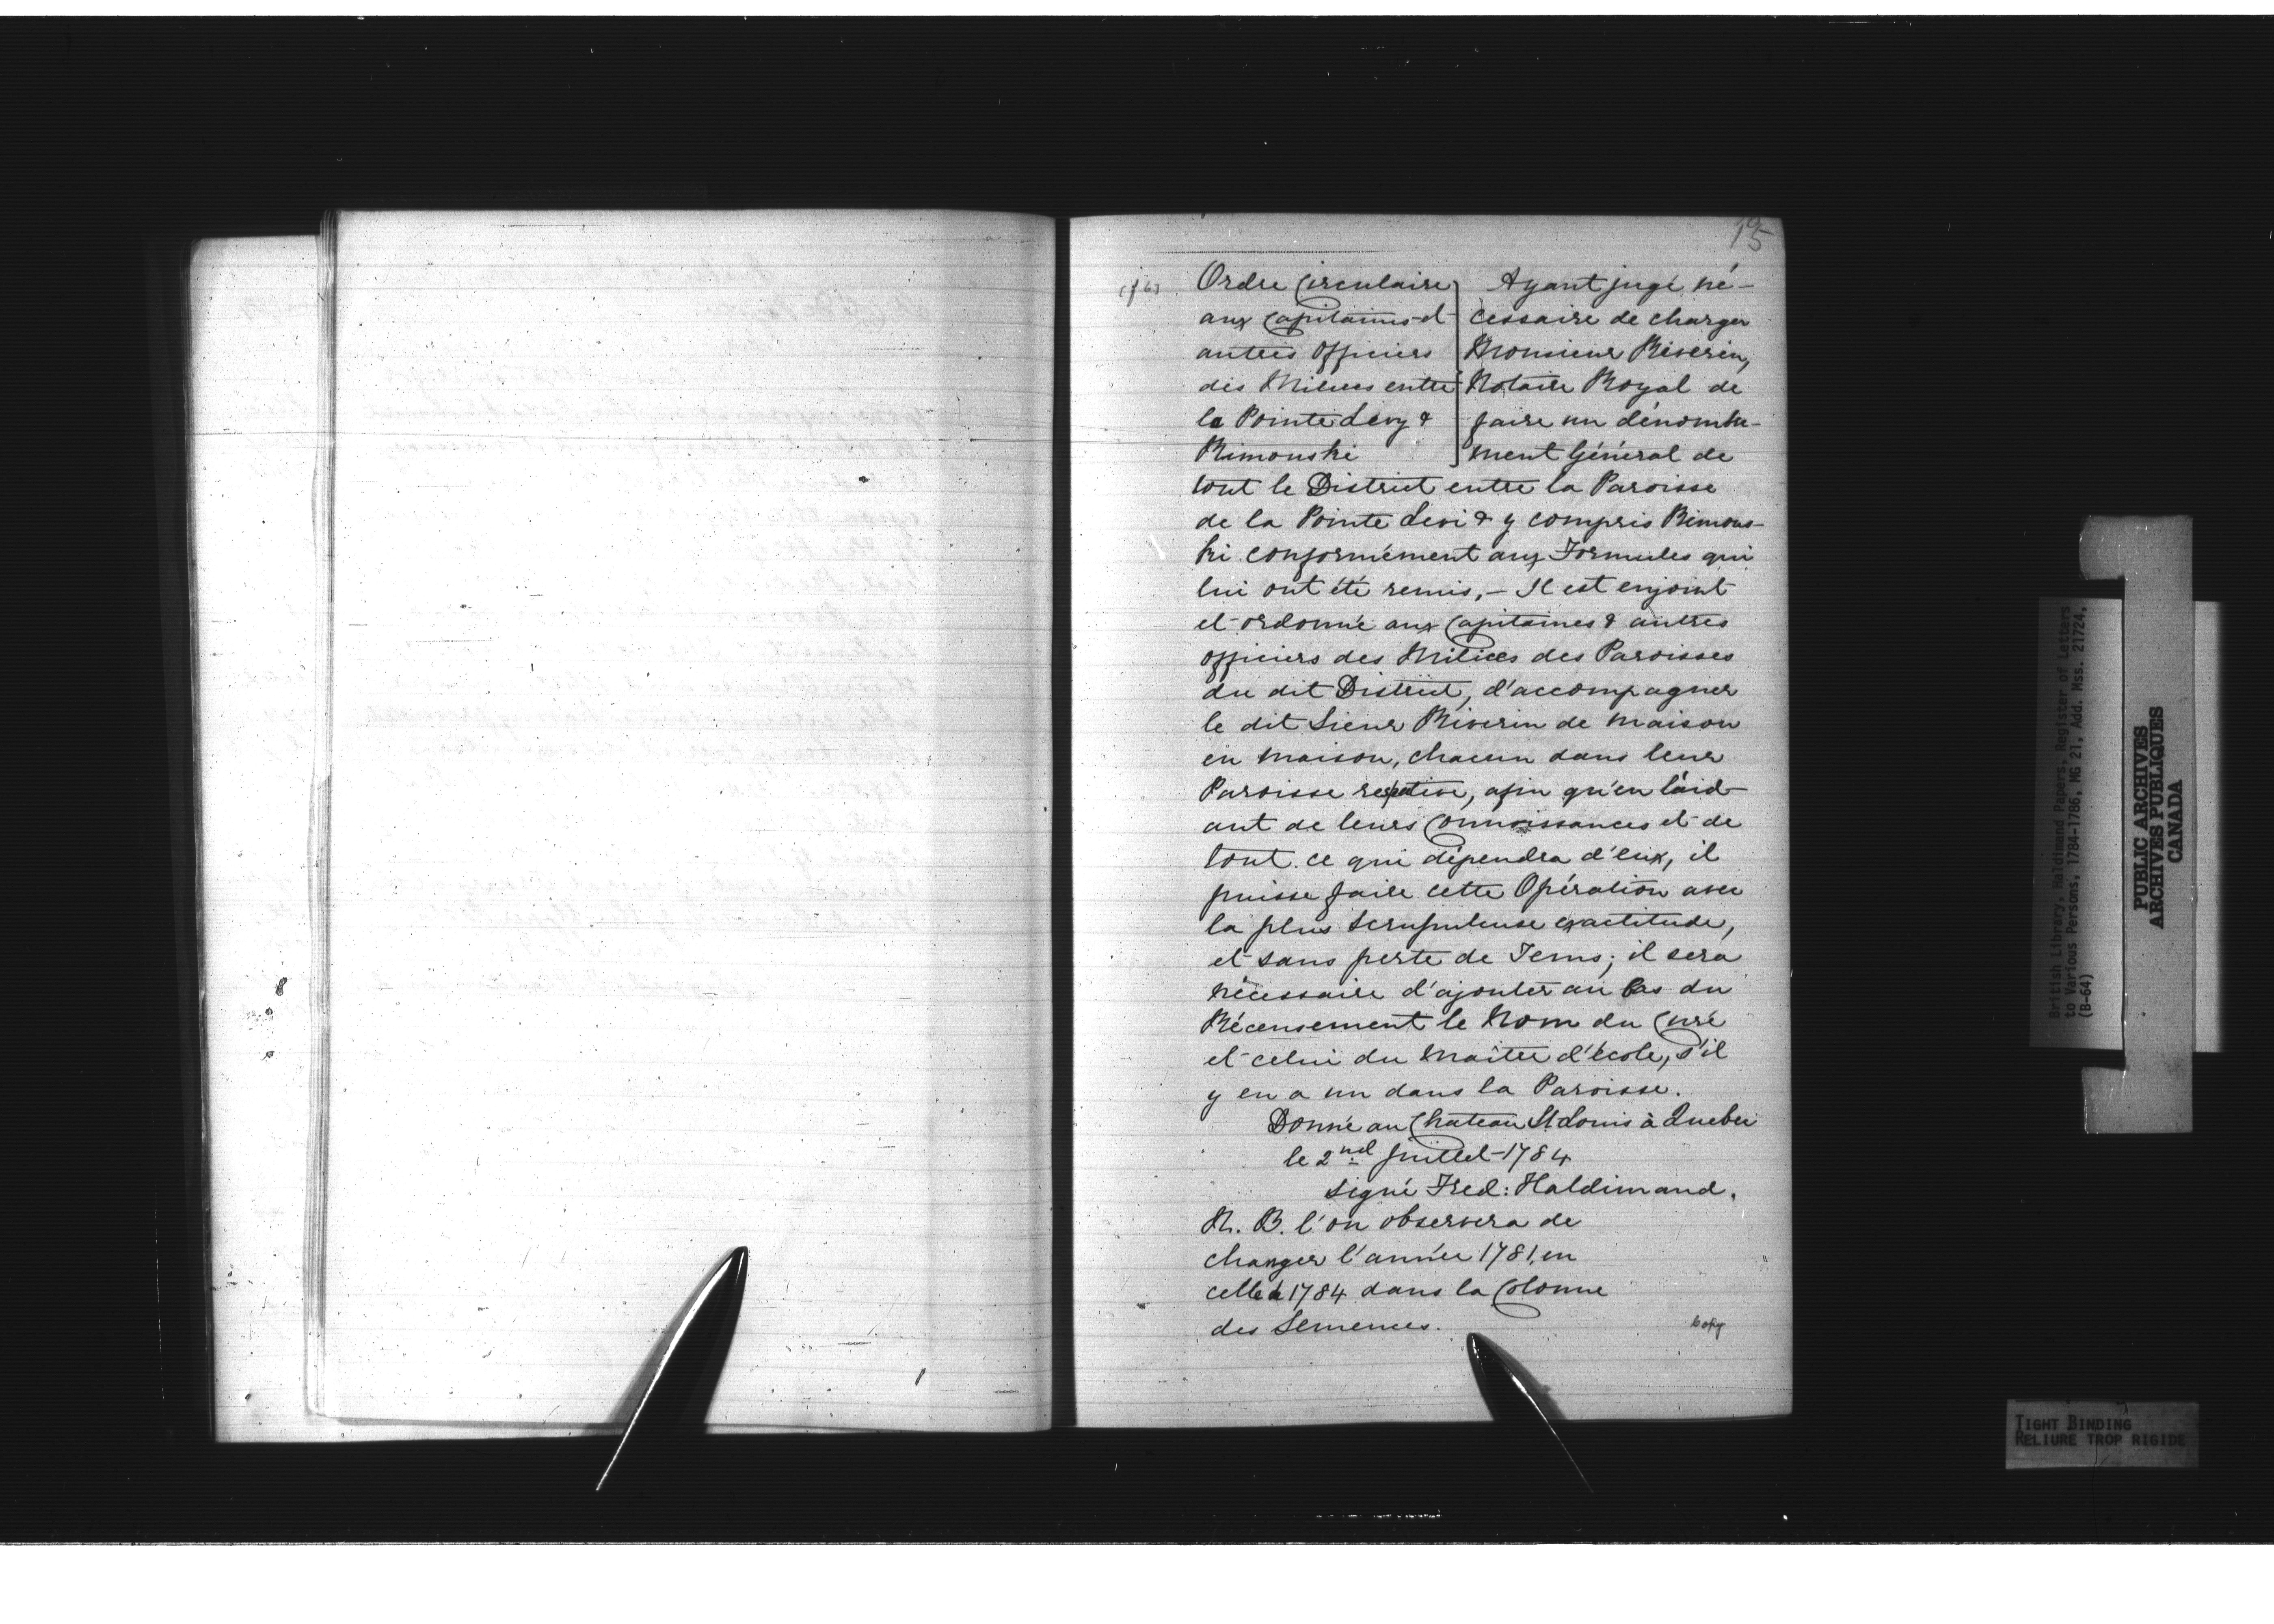 15
(f 6)
Ordre Circulaire
aux Capitaines et
autres Officiers
des Milices entre
la Pointe Levy &
Rimouski
Ayant jugé né-
cessaire de charger
Monsieur Riverin,
Notaire Royal de
faire un dénombre-
ment Général de
tout le District entre la Paroisse
de la Pointe Levi & y compris Rimous-
ki conformément aux Formules qui
lui ont été remis, — Il est enjoint
et ordonné aux Capitaines & autres
officiers des Milices des Paroisses
du dit District, d'accompagner
le dit Sieur Riverin de maison
en maison, chacun dans leur
Paroisse respective, afin qu'en l'aid-
ant de leurs Connoissances et de
tout ce qui dépendra d'eux, il
puisse faire cette Opération avec
la plus scrupuleuse exactitude,
et sans perte de Tems; il sera
nécessaire d'ajouter au bas du
Récensement le Nom du Curé
et celui du Maître d'école, s'il
y en a un dans la Paroisse.
Donné au Chateau St Louis à Quebec
le 2nd Juillet 1784
signé Fred: Haldimand.
N. B. l'on observera de
changer l'année 1781, en
celle de 1784 dans la Colonne
des Semences.
Copy
British Library, Haldimand Papers, Register of Letters
to Various Persons, 1784-1786, MG 21, Add. Mss. 21724,
(B-64)
PUBLIC ARCHIVES
ARCHIVES PUBLIQUES
CANADA
TIGHT BINDING
RELIURE TROP RIGIDE